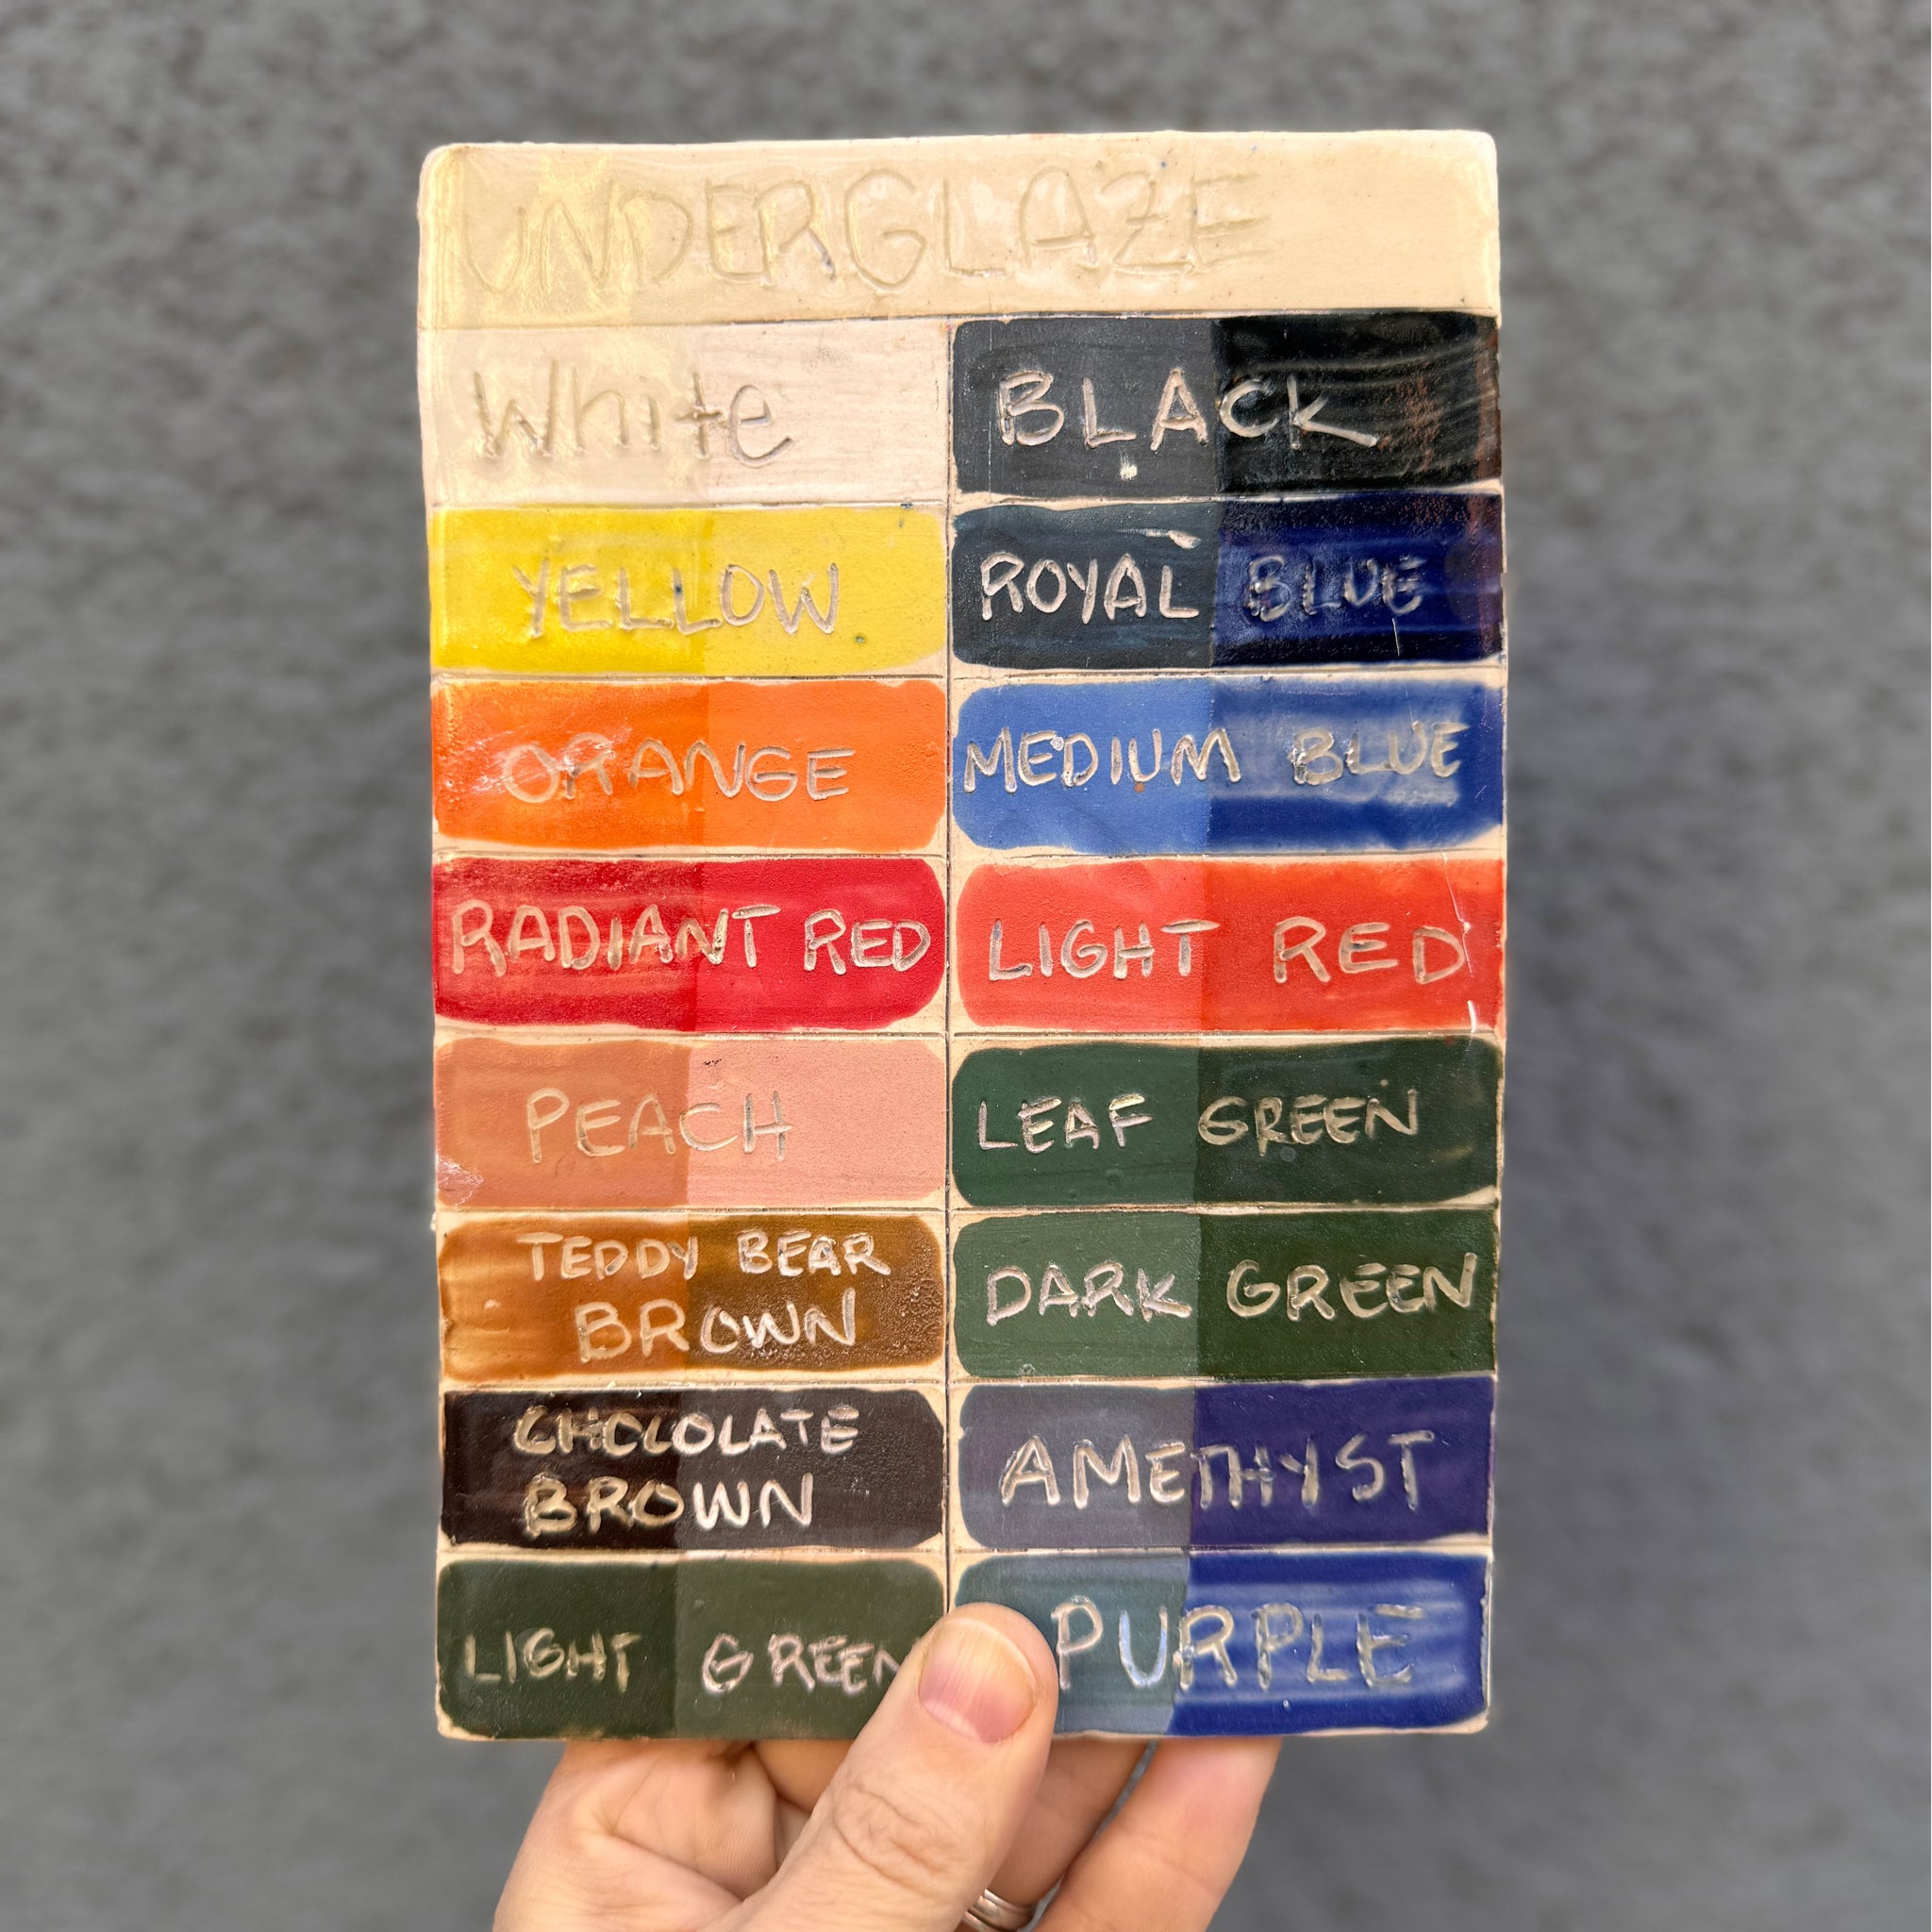 UNDERGLAZE
White
BLACK
YELLOW
ROYAL BLUE
ORANGE
MEDIUM BLUE
RADIANT RED
LIGHT RED
PEACH
LEAF GREEN
TEDDY BEAR
BROWN
DARK GREEN
CHOCOLATE
BROWN
AMETHYST
LIGHT GREEN
PURPLE